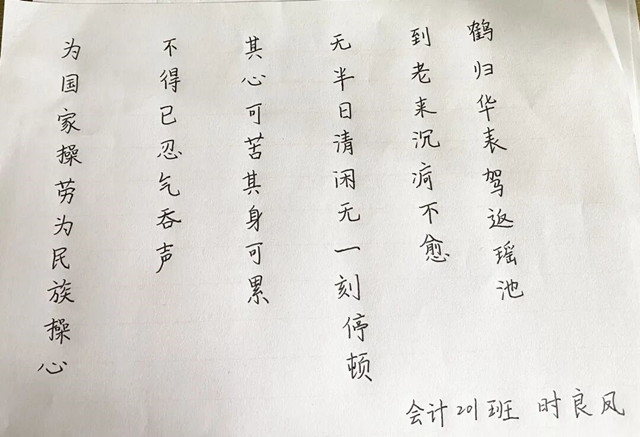 为国家操劳为民族操心
不得已忍气吞声
其心可苦其身可累
无半日清闲无一刻停顿
到老来沉疴不愈
鹤归华表驾返瑶池
会计201班 时良凤